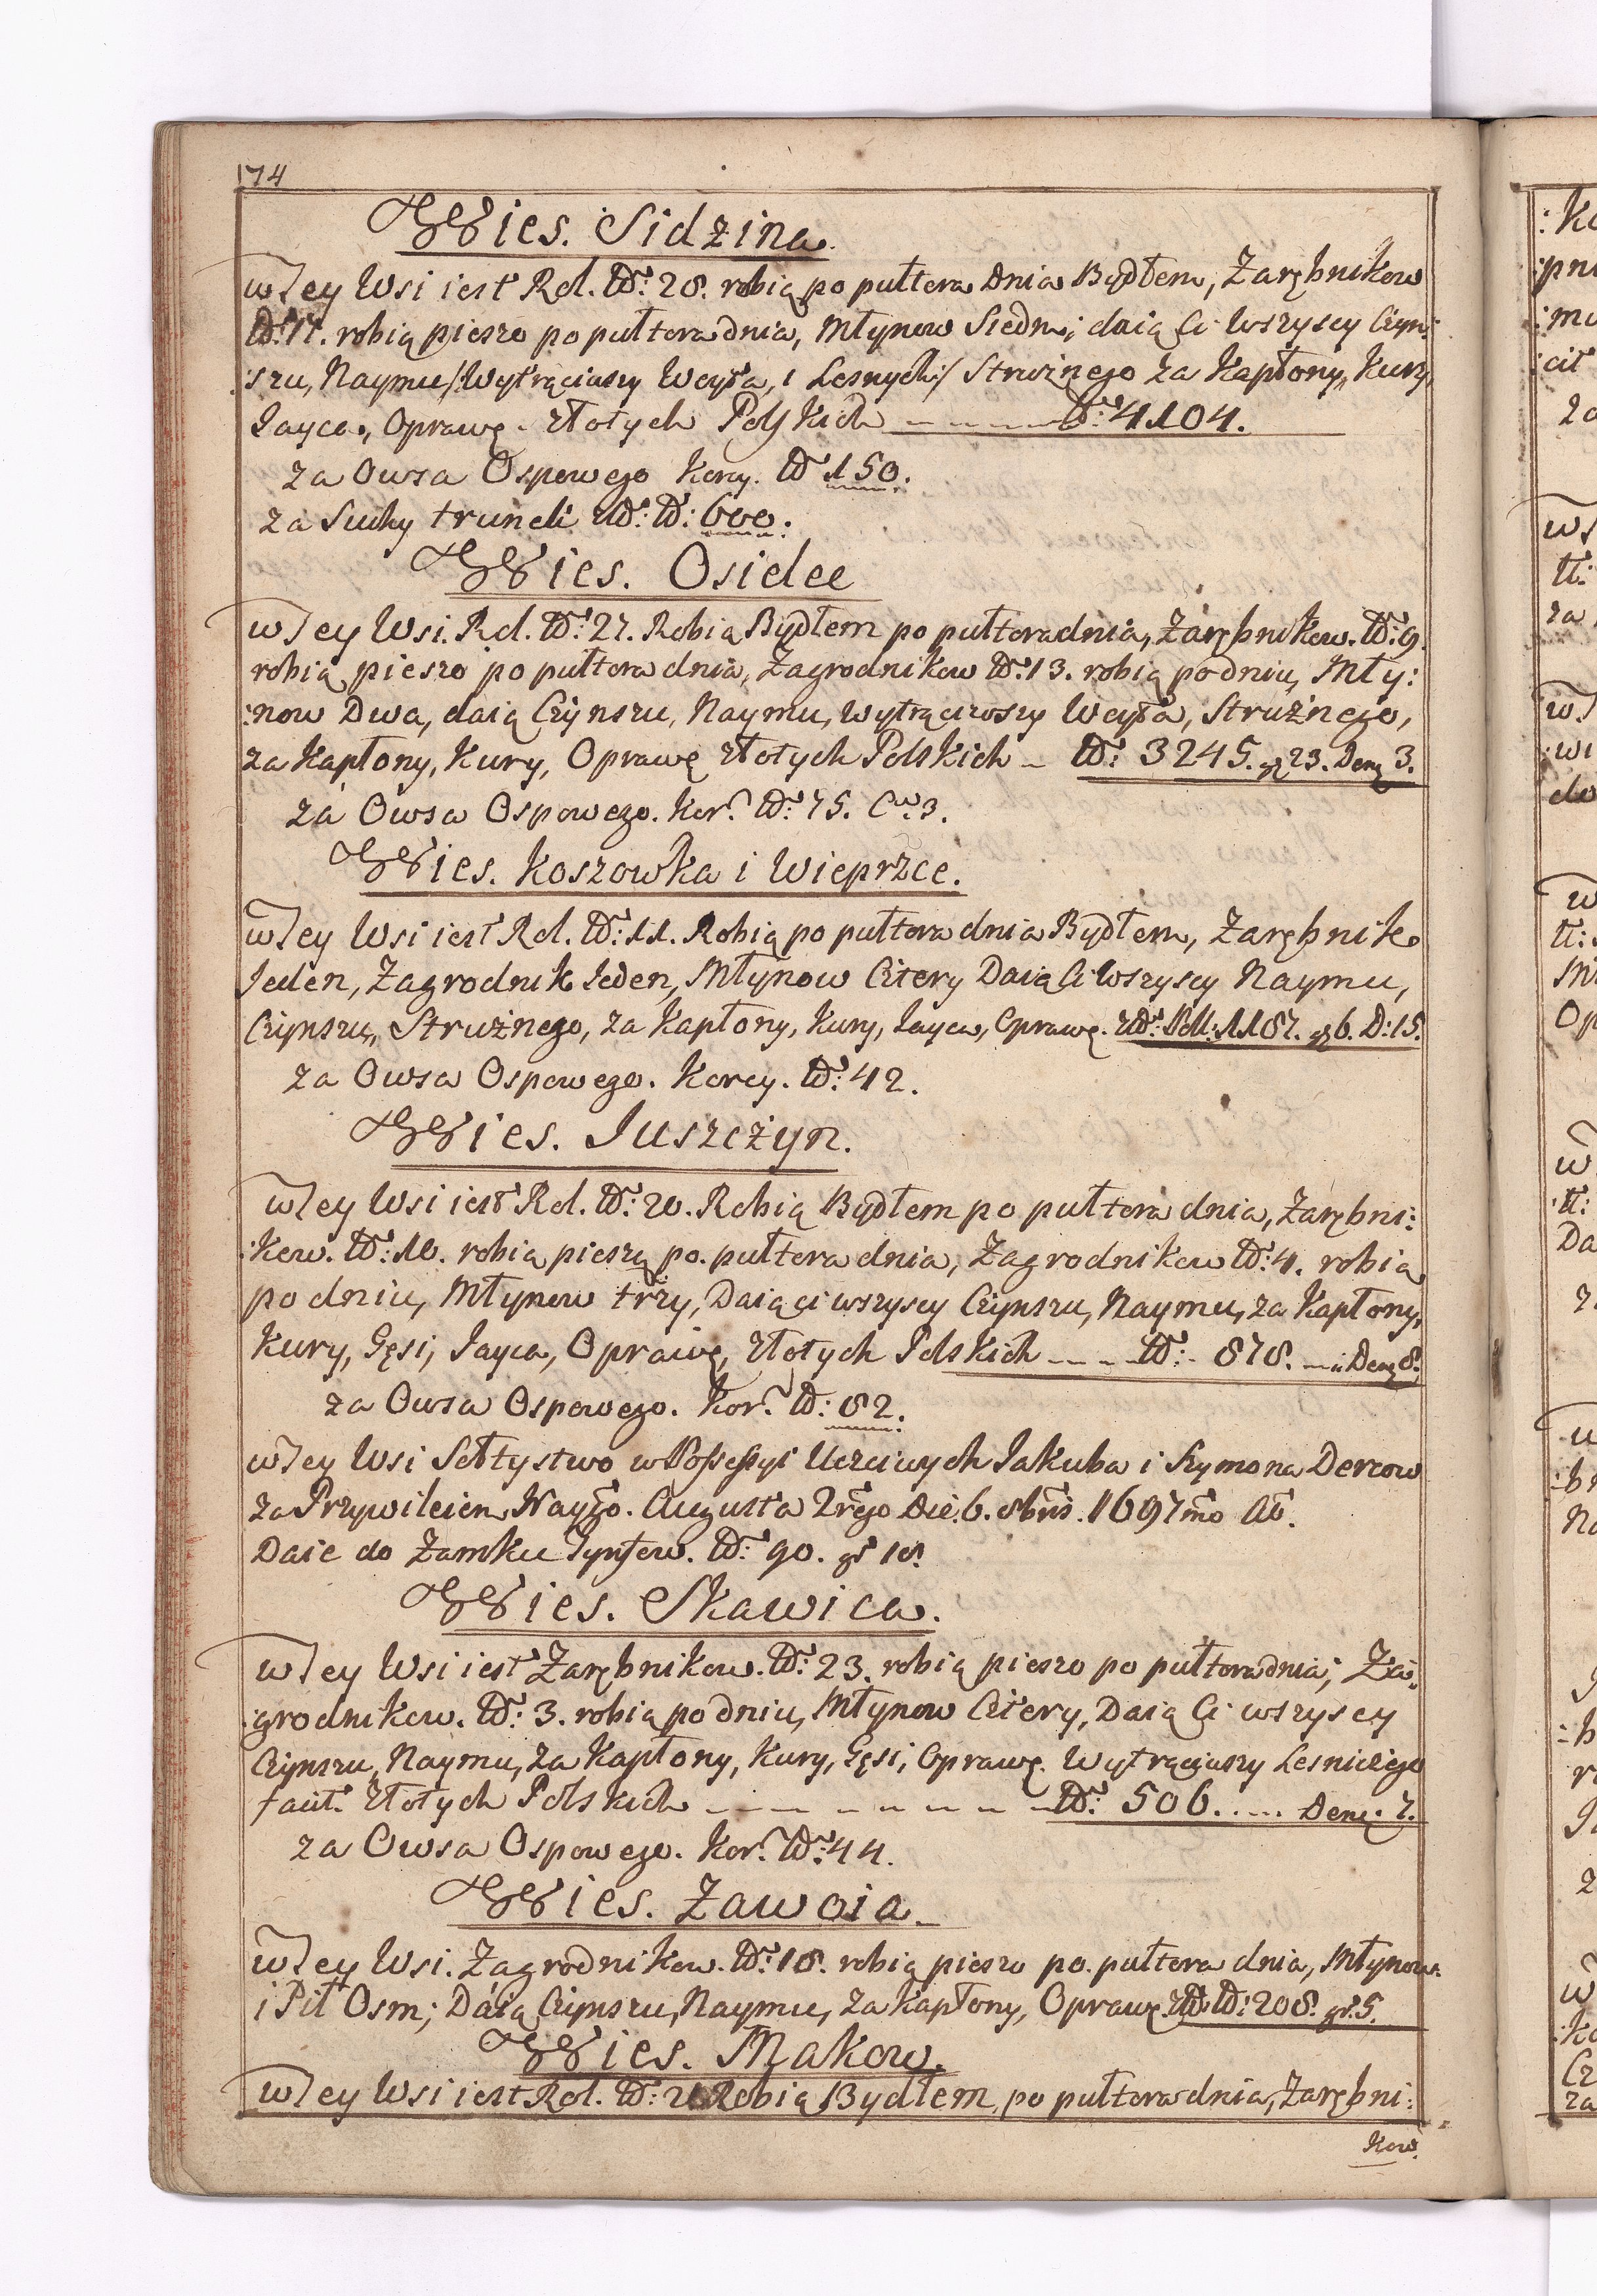 174
Wies. Sidzina.
w Tey Wsi iest Rol. No: 28. robią po pułtora Dnia Bydłem, Zarębnikow
No: 17. robią pieszo po pułtora dnia, Młynow Siedm; daią Ci Wszyscy Czyn:
:szu, Naymu /:Wytrąciwszy Woyta, i Lesnych:/ Strużnego za Kapłony, Kury,
Iayca, Oprawę. złotych Polskich ---- No: 4104.
za Owsa Ospowego Korcy. No 150.
za Suchy trunek Zł: No: 600.
Wies. Osielec
w Tey Wsi. Rol. No: 27. Robią Bydłem po pułtoradnia, Zarębnikow. No: 9.
robią pieszo po pułtora dnia, Zagrodnikow No: 13. robią po dniu, Mły:
:now Dwa, daią Czynszu, Naymu, wytrąciwszy Woyta, Strużnego,
za Kapłony, Kury, Oprawę złotych Polskich - No: 3245. gr 23. Den 3.
za Owsa Ospowego. Kor. No: 75. Cw: 3.
Wies. Koszowka i Wieprzce.
w Tey Wsi iest Rol. No: 11. Robią po pułtora dnia Bydłem, Zarębnik
Ieden, Zagrodnik Ieden, Młynow Cztery Daią Ci Wszyscy Naymu,
Czynszu, Strużnego, za Kapłony, Kury, Iayca, Oprawę. Zł: Poll: 1187. gr 6. D: 15.
za Owsa Ospowego. Korcy. No: 42.
Wies. Iuszczyn.
w Tey Wsi iest Rol. No: 20. Robią Bydłem po pułtora dnia, Zarębni:
:kow. No: 10. robią pieszą po. pułtora dnia, Zagrodnikow No: 4. robią
po dniu, Młynow trzy, Daią ci wszyscy Czynszu, Naymu, za Kapłony,
Kury, Gęsi, Iayca, Oprawę, złotych Polskich ---- No: 878. -- Den 8.
za Owsa Ospowego. Kor. No: 82.
w Tey Wsi Sołtystwo w Possessyi Uczciwych Iakuba i Szymona Dercow
za Przywileiem Naygo. Augusta 2rego Die. 6. 8bris. 1697mo Ao.
Daie do Zamku Tynfow. No: 90. gr 18.
Wies. Skawica.
w Tey Wsi iest Zarębnikow. No: 23. robią pieszo po pułtoradnia; Za:
:grodnikow. No: 3. robią po dniu, Młynow Cztery, Daią Ci wszyscy
Czynszu, Naymu, za Kapłony, Kury, Gęsi, Oprawę. Wytrąciwszy Lesniczego
facit. złotych Polskich -------- No: 506. .... Den: 7.
za Owsa Ospowego. Kor. No: 44.
Wies. Zawoia.
w Tey Wsi. Zagrodnikow. No: 18. robią pieszo po. pułtora dnia, Młynow.
i Pił Osm; Daią Czynszu, Naymu, za Kapłony, Oprawę. Zł: No: 208. gr. 5.
Wies. Makow.
w Tey Wsi iest Rol. No: Robią Bydłem, po pułtora dnia, Zarębni:
Kow.